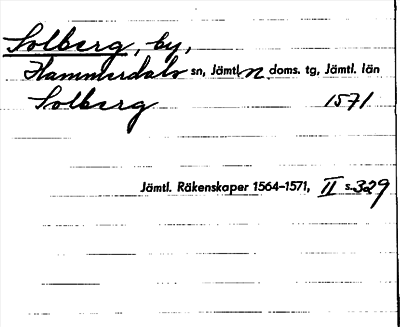 Solberg, by,
Hammerdals sn, Jämtl. n. doms. tg, Jämtl. län
Solberg 1571
Jämtl. Räkenskaper 1564–1571, II s. 329